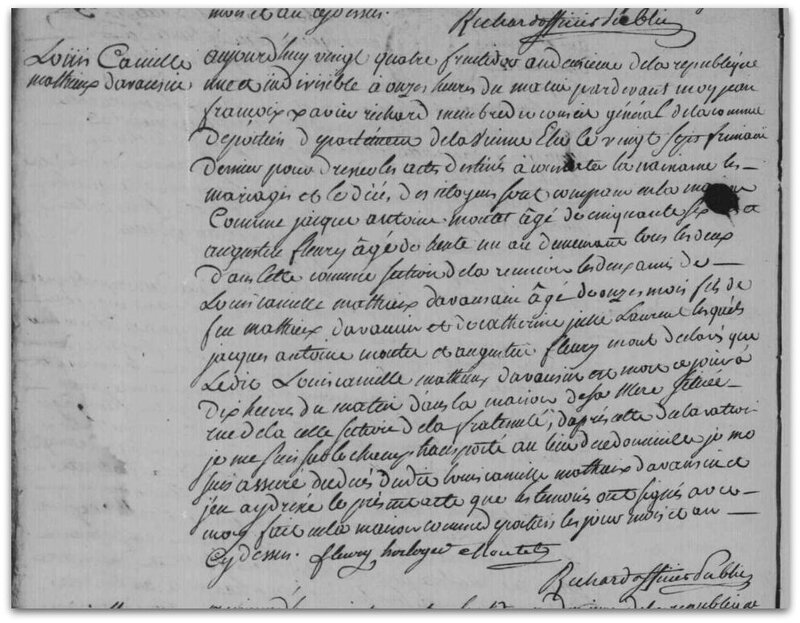 mois et an cydessus.
Richard officier Public
Louis Camille
mathieux davausin
aujourd'huy vingt quatre fructidor an deuxieme de la republique
une et indivisible à onze heures du matin pardevant moy jean
francoix xavier richard membre du conseil général de la commune
depoitiers departement de la vienne Elu le vingt sept frimaire
dernier pour dresser les actes destinés à constater la naissance les
mariages et le décés des citoyens sont comparu en la maison
Commune jacque antoine montet âgé de cinquante six et
augustin fleury âgé de trente un an demeurant tous les deux
dans cette commune section de la reunion les deux amis de
Louis camille mathieux davausain âgé de onze mois fils de
feu mathieux davausin et de catherine julie Laurent lesquels
jacques antoine montet et augustin fleury mont declaré que
Ledit Louis camille mathieux davausin est mort ce jour à
Dix heures du matin dans la maison de sa Mere Scituée
rue de la celle section de la fraternité, d'aprés cette declaration
je me suis sur le champ transporté au lieu de ce domicille je me
suis assuré du décés dudit Louis camille mathieux davausin et
j'en ay dressé le présent acte que les temoins ont signés avec
moy fait en la maison commune depoitiers les jour mois et an
Cydessus. fleury horloger Montet
Richard officier Public